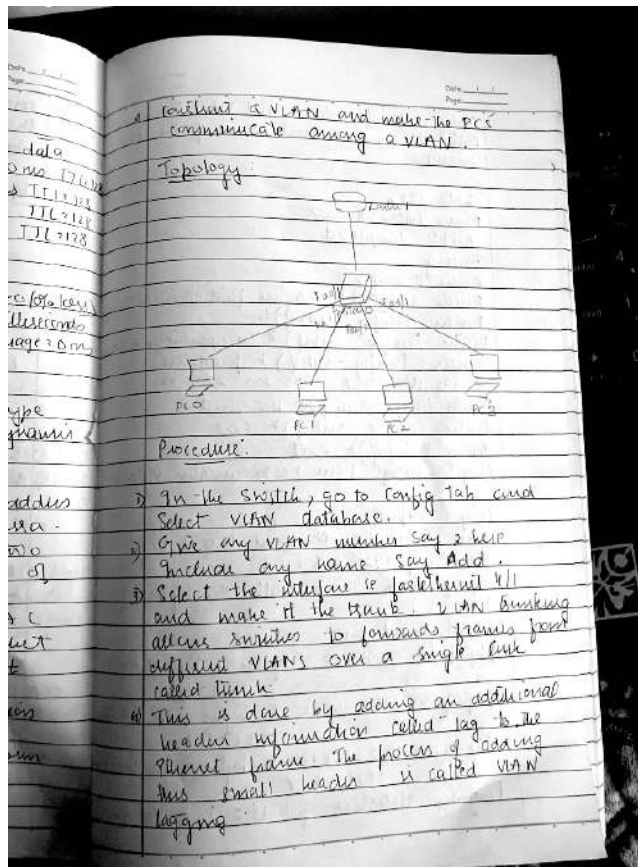 Date
Page
data
TTL=128
TTL=128
TTL=128
Date
Page
Construct a VLAN and make the PC's
communicate among a VLAN.
Topology:
Router 1
PC0
PC1
PC2
PC3
Procedure:
1) In the Switch, go to Config Tab and
Select VLAN database.
2) Give any VLAN number say 2 here
Include any name say Add.
3) Select the interface ie fastethernet 4/1
and make it the trunk. VLAN trunking
allows switches to forwards frames from
different VLANS over a single link
called trunk
4) This is done by adding an additional
header information called tag to the
Ethernet frame The process of adding
this small header is called VLAN
tagging